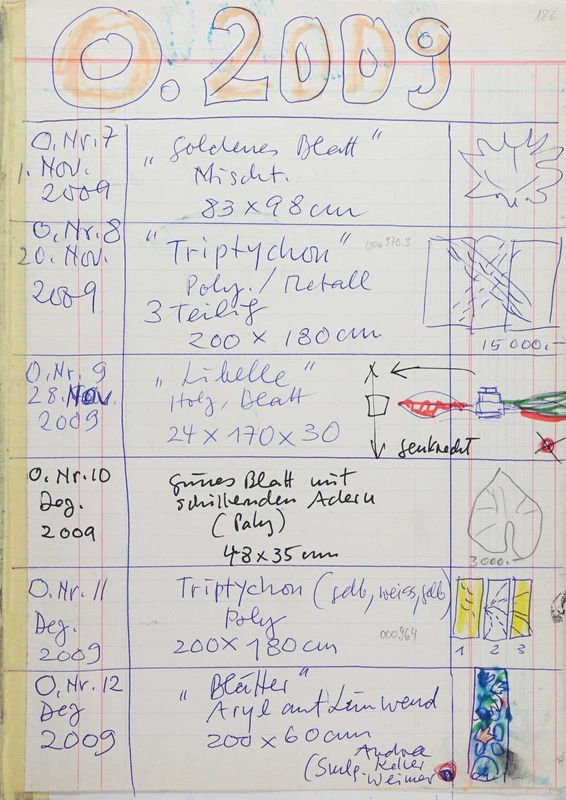 186
O. 2009
O. Nr. 7
1. Nov.
2009
„Goldenes Blatt“
Mischt.
83 x 98 cm
O. Nr. 8
20. Nov.
2009
„Triptychon“
Poly. / Metall
3 Teilig
200 x 180 cm
15 000.-
O. Nr. 9
28. Nov.
2009
„Libelle“
Holz, Blatt
24 x 170 x 30
x
senkrecht
O. Nr. 10
Dez.
2009
grünes Blatt mit
schillenden Adern
(Poly)
48 x 35 cm
3000.-
O. Nr. 11
Dez.
2009
Triptychon (gelb, weiss, gelb)
Poly
200 x 180 cm
000964
1 2 3
O. Nr. 12
Dez
2009
„Blätter“
Acryl auf Leinwand
200 x 60 cm
Andrea
(Sculp. Keller
Weimer